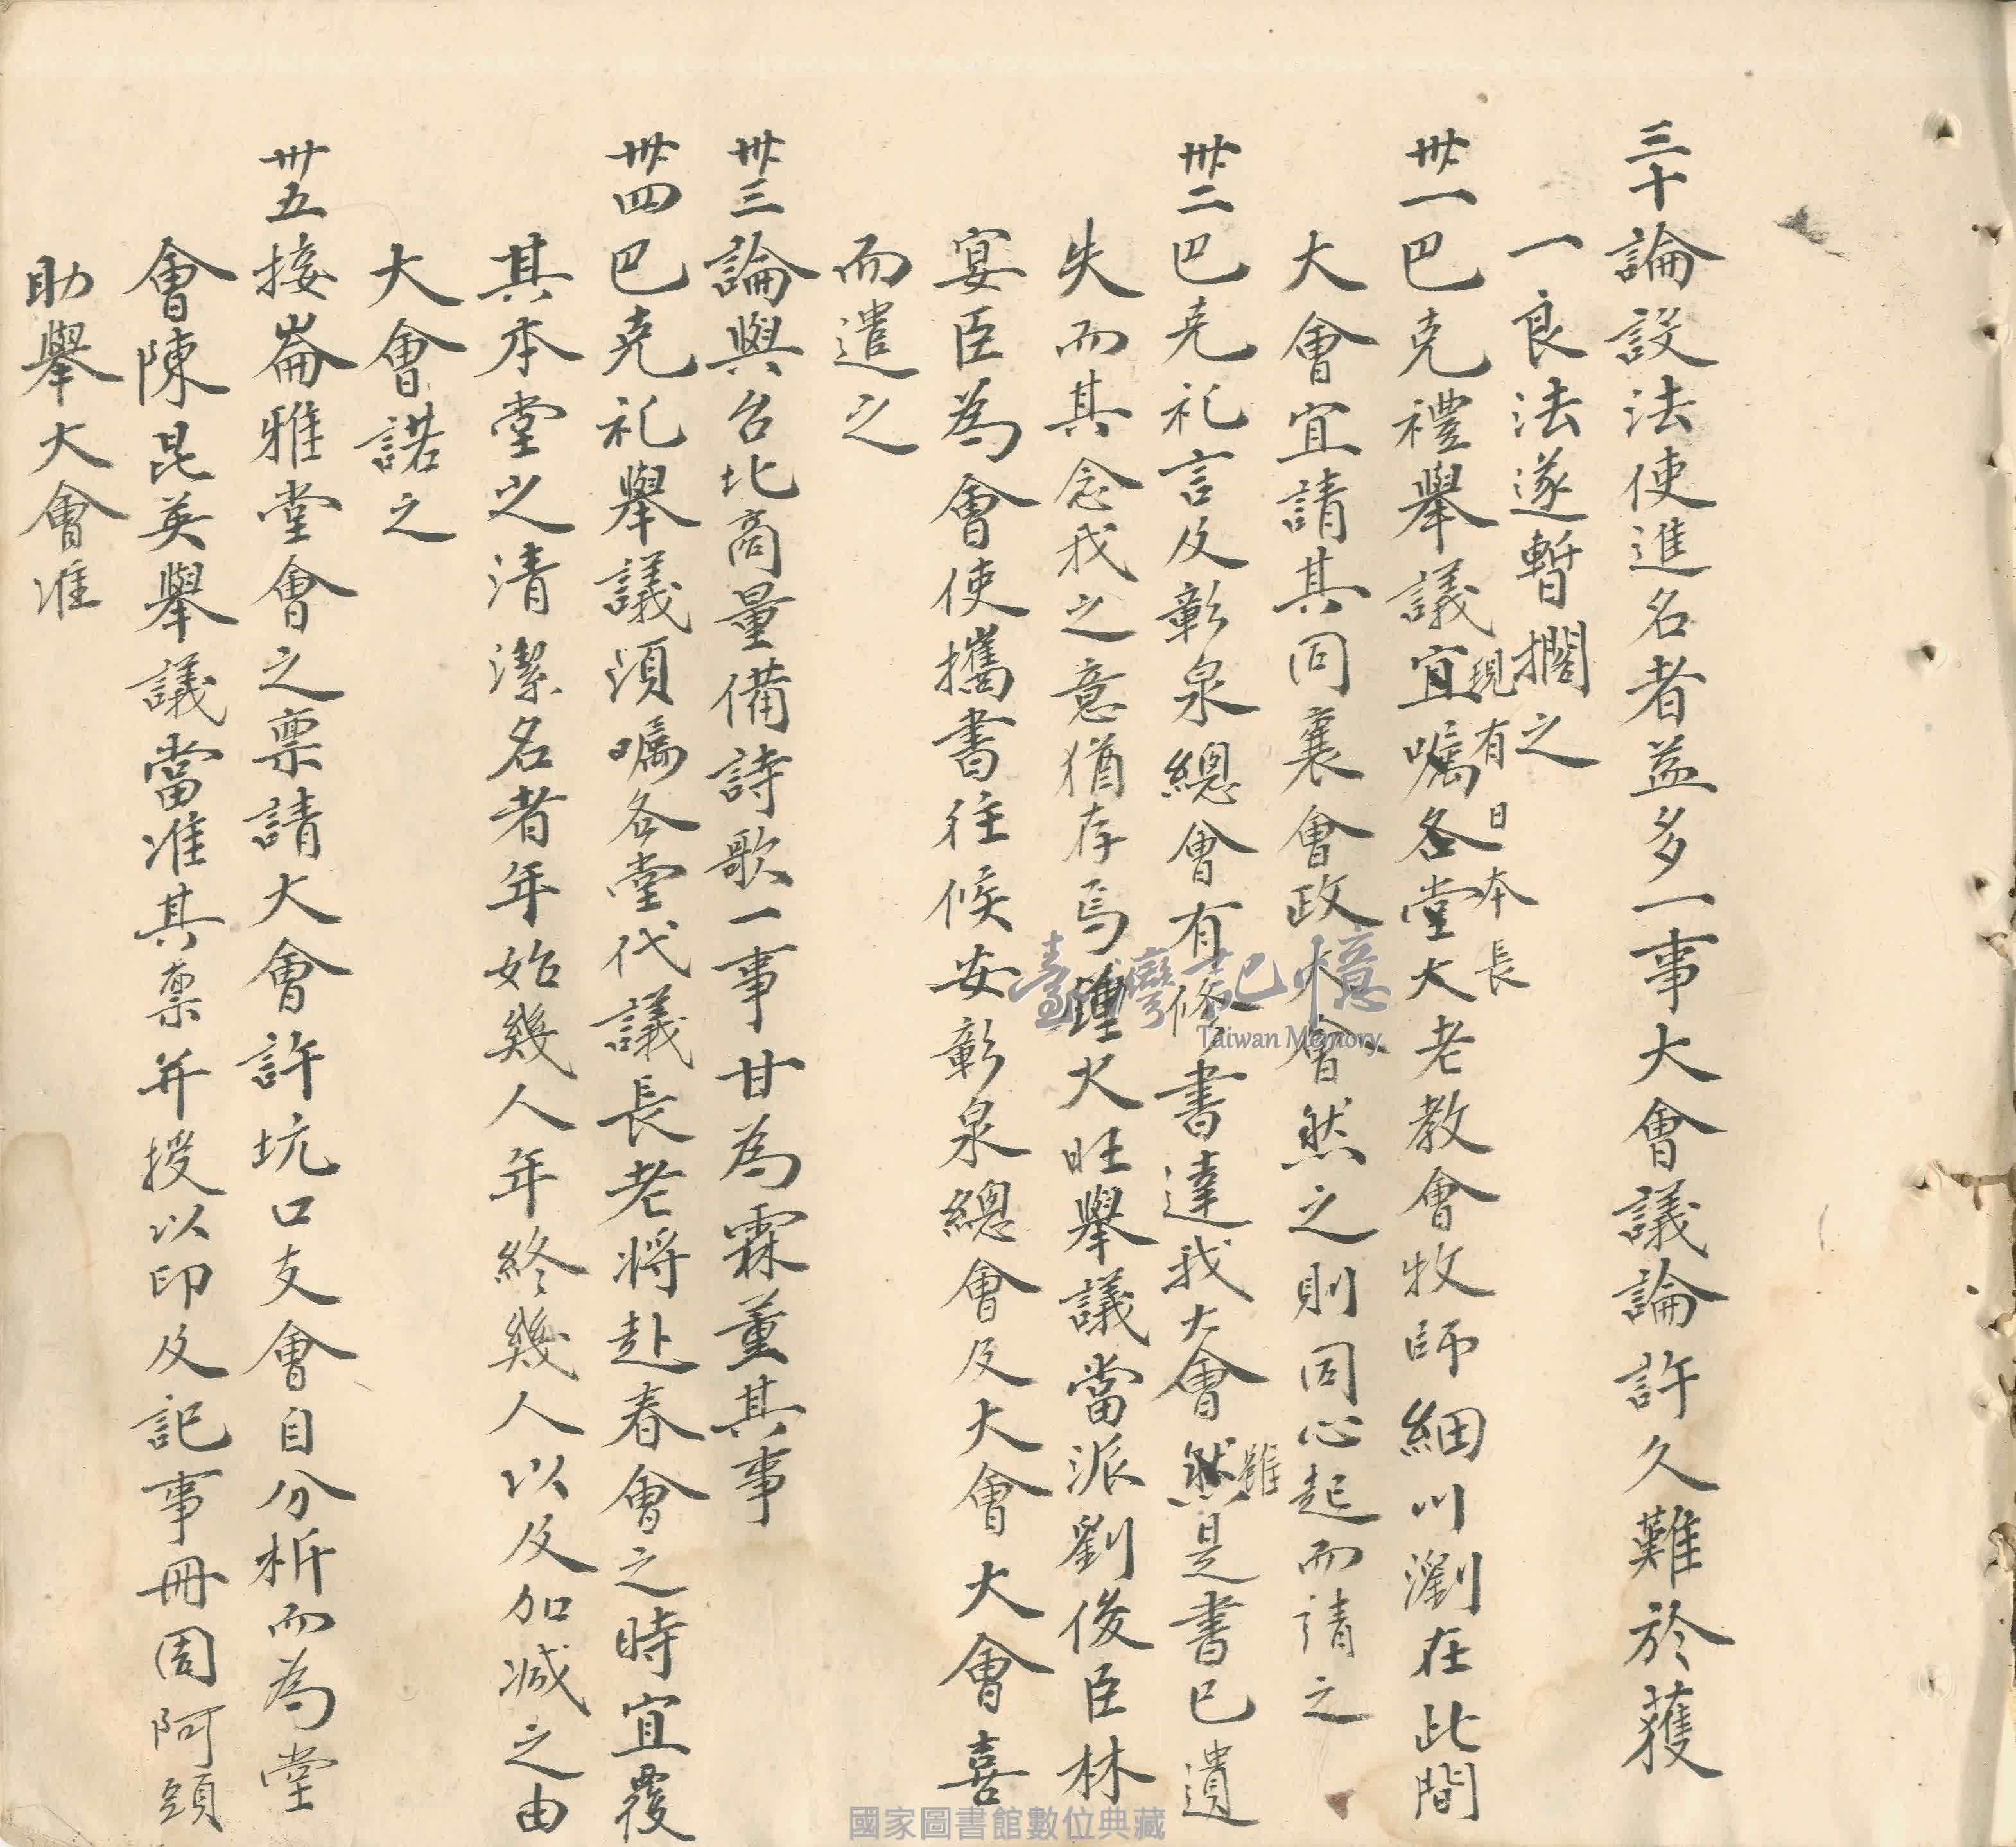 三十論設法使進名者益多一事大會議論許久難於獲
一良法遂暫擱之
卅一巴克禮舉議宜嘱各堂大老教會牧師細川瀏在此間
現有日本長
大會宜請其同襄會政大會然之則同心起而請之
卅二巴克礼言及彰泉總會有修書達我大會然是書已遺
雖
失而其念我之意猶存焉鍾火旺舉議當派劉俊臣林
宴臣為會使攜書往候安彰泉總會及大會大會喜
而遣之
卅三論與台北商量備詩歌一事甘為霖董其事
卅四巴克礼舉議須嘱各堂代議長老將赴春會之時宜覆
其本堂之清潔名者年始幾人年終幾人以及加减之由
大會諾之
卅五接崙雅堂會之禀請大會許坑口支會自分析而為堂
會陳昆英舉議當准其禀并授以印及記事冊周阿頭
助舉大會准
臺灣記憶
Taiwan Memory
國家圖書館數位典藏